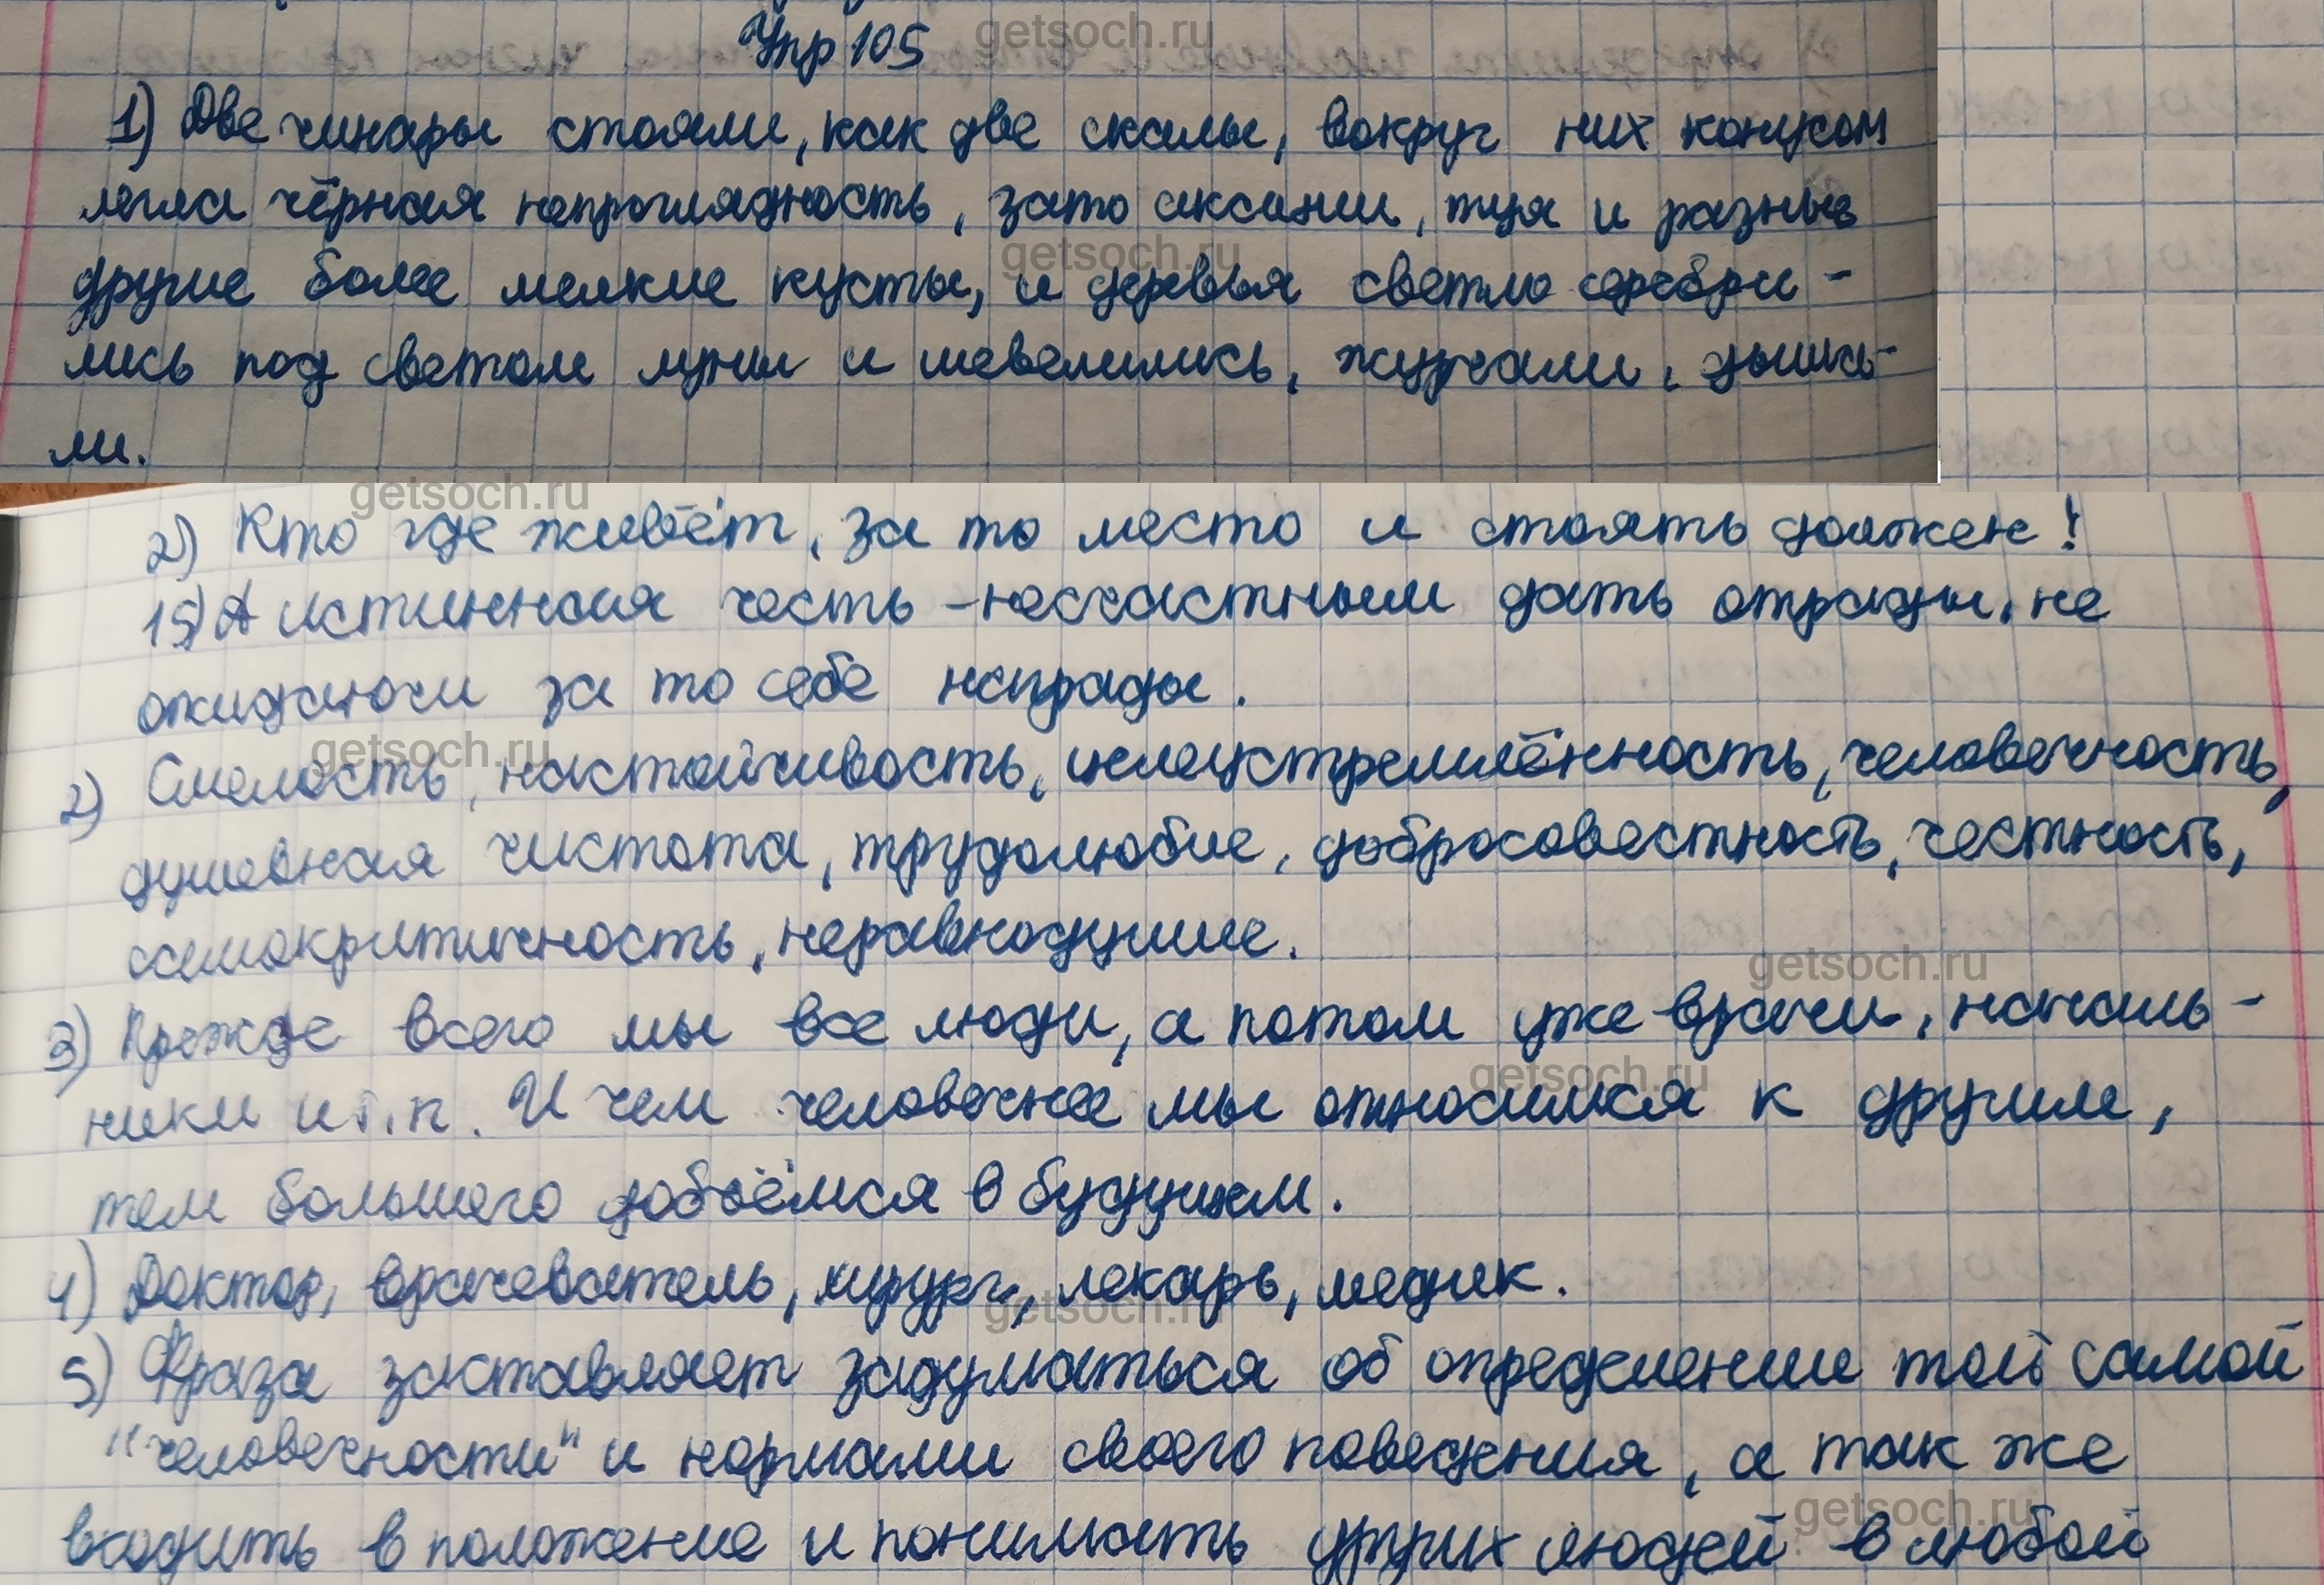 Упр 105
1) Две чинары стояли, как две скалы, вокруг них конусом
легла чёрная непроглядность, зато аксании, туя и разные
другие более мелкие кусты, и деревья светло серебри-
лись под светом луны и шевелились, журчали, дыша-
ли.
2) Кто где живёт, за то место и стоять должен!
15) А истинная честь - несчастным дать отрады, не
ожидаючи за то себе награды.
2) Смелость, настойчивость, целеустремлённость, человечность,
душевная чистота, трудолюбие, добросовестность, честность,
самокритичность, неравнодушие.
3) Прежде всего мы все люди, а потом уже врачи, началь-
ники и т.п. И чем человечнее мы относимся к другим,
тем большего добьёмся в будущем.
4) Доктор, врачеватель, хирург, лекарь, медик.
5) Фраза заставляет задуматься об определении той самой
"человечности" и нормами своего поведения, а так же
входить в положение и понимать других людей в любой
getsoch.ru
getsoch.ru
getsoch.ru
getsoch.ru
getsoch.ru
getsoch.ru
getsoch.ru
getsoch.ru